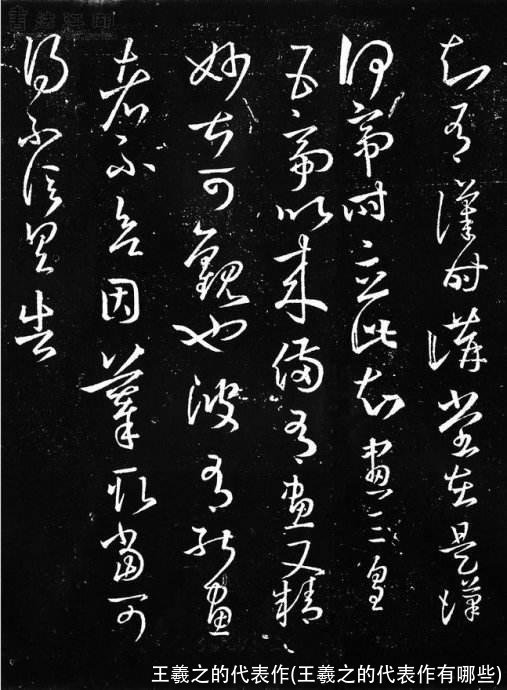 知有漢時講堂在是漢
何帝時立此知畫三皇
五帝以來備有畫又精
妙甚可觀也彼有能畫
者不欲因摹取當可
得不信具告
王羲之的代表作(王羲之的代表作有哪些)